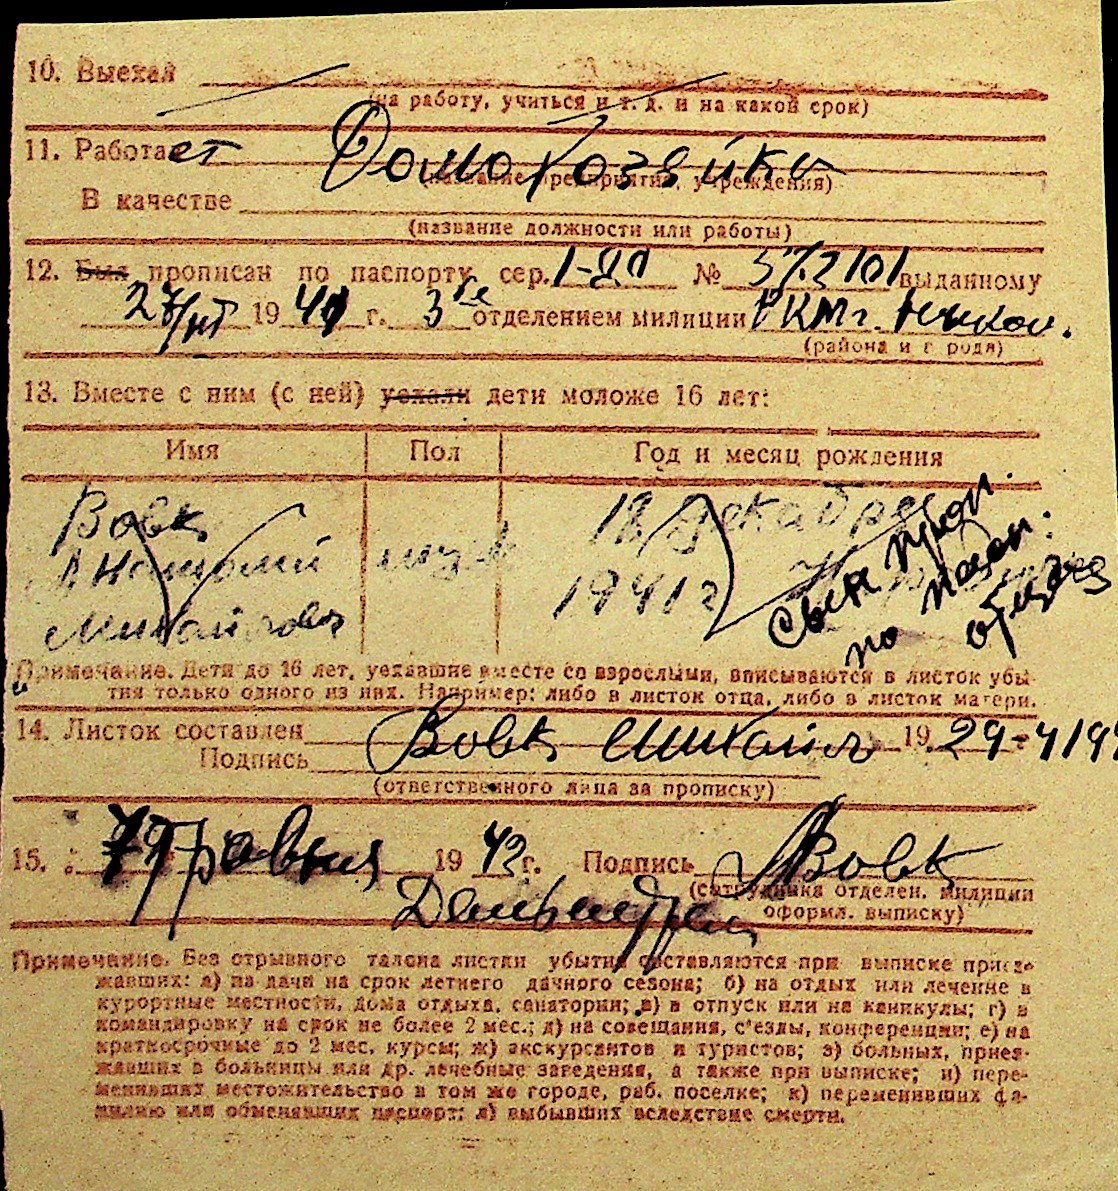 10. Выехал
(на работу, учиться и т. д. и на какой срок)
11. Работает Домохозяйка
(название предприятия, учреждения)
В качестве
(название должности или работы)
12. Был прописан по паспорту сер. 1-ЯП № 572101 выданному
1941 г. 3 отделением милиции РКМ г.
(района и города)
13. Вместе с ним (с ней) уехали дети моложе 16 лет:
Имя Пол Год и месяц рождения
Вовк 18 декабря
Анатолий муж 1941 г
Михайлович
Сын проп.
по
отца
Примечание. Дети до 16 лет, уехавшие вместе со взрослыми, вписываются в листок убы-
тия только одного из них. Например: либо в листок отца, либо в листок матери.
14. Листок составлен Вовк Михаил 19 29-4/194
Подпись
(ответственного лица за прописку)
15. травня 1942 г. Подпись Вовк
(сотрудника отделен. милиции
оформл. выписку)
Примечание. Без отрывного талона листки убытия составляются при выписке приез-
жавших: а) на дачи на срок летнего дачного сезона; б) на отдых или лечение в
курортные местности, дома отдыха, санатории; в) в отпуск или на каникулы; г) в
командировку на срок не более 2 мес.; д) на совещания, с'езды, конференции; е) на
краткосрочные до 2 мес. курсы; ж) экскурсантов и туристов; з) больных, приез-
жавших в больницы или др. лечебные заведения, а также при выписке; и) пере-
менивших местожительство в том же городе, раб. поселке; к) переменивших фа-
милию или обменявших паспорт; л) выбывших вследствие смерти.